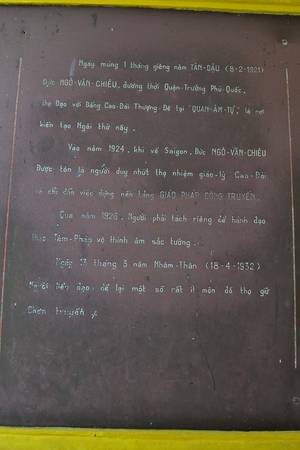 Ngày mùng 1 tháng giêng năm TÂN-DẬU (8-2-1921)
Đức NGÔ-VĂN-CHIÊU, đương thời Quận-Trưởng Phú-Quốc,
thọ Đạo với Đấng Cao-Đài Thượng-Đế tại "QUAN-ÂM-TỰ", là nơi
kiến tạo Ngài thờ nầy.
Vào năm 1924, khi về Saigon, Đức NGÔ-VĂN-CHIÊU
Được tôn là người duy nhứt thọ nhiệm giáo-lý Cao-Đài
và chỉ dẫn việc dựng nên GIÁO PHÁP CÔNG TRUYỀN.
Qua năm 1926, Người phải tách riêng để hành đạo
Tâm-Pháp vô thinh âm sắc tướng.
Ngày 13 tháng 3 năm Nhâm-Thân (18-4-1932)
Người liễu đạo, để lại một số rất ít môn đồ thọ giữ
Chơn truyền